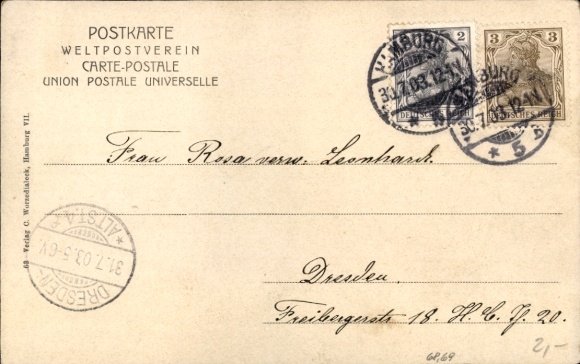 POSTKARTE
WELTPOSTVEREIN
CARTE-POSTALE
UNION POSTALE UNIVERSELLE
2
DEUTSCHES REICH
3
DEUTSCHES REICH
HAMBURG
30.7.03.12-1N
* 5 B
HAMBURG
30.7.03.12-1N
Frau Rosa verw. Leonhardt.
Dresden,
Freibergerstr 18. H. C. J. 20.
* ALTST.A *
31.7.03.5-6V
DRESDEN-
63 Verlag C. Worzedialeck, Hamburg VII.
68,69
2,-